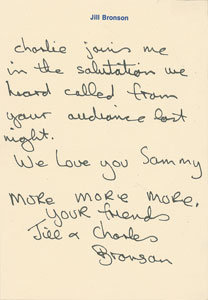 Jill Bronson
charlie joins me
in the salutation we
heard called from
your audience last
night.
We Love you Sammy
MORE MORE MORE.
YOUR friends
Jill & Charles
Bronson